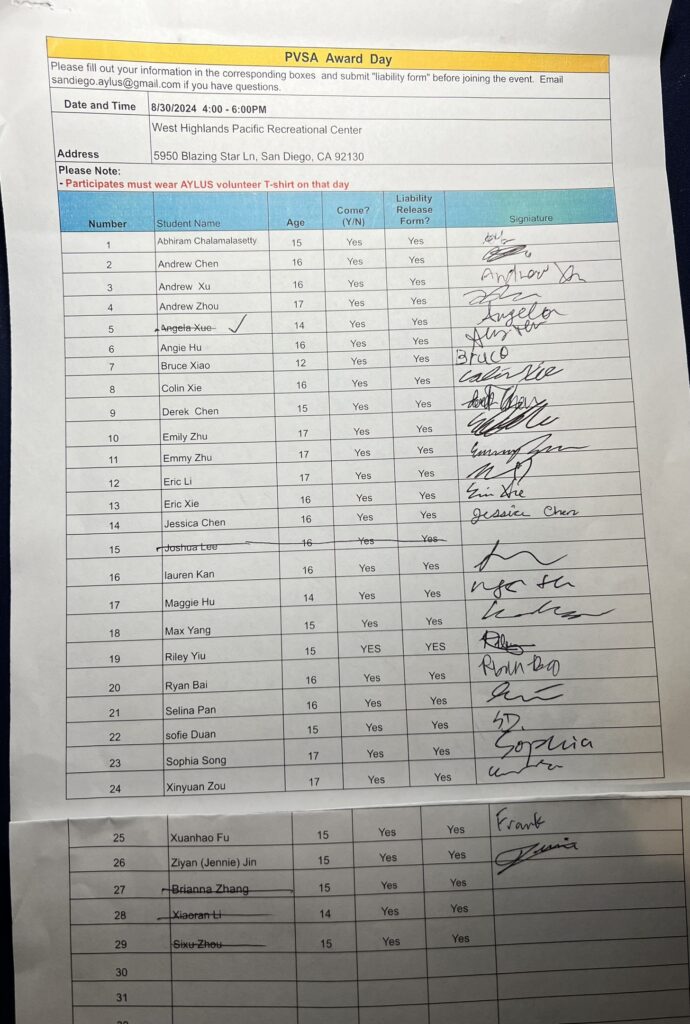 PVSA Award Day
Please fill out your information in the corresponding boxes and submit "liability form" before joining the event. Email
sandiego.aylus@gmail.com if you have questions.
Date and Time 8/30/2024 4:00 - 6:00PM
West Highlands Pacific Recreational Center
Address 5950 Blazing Star Ln, San Diego, CA 92130
Please Note:
- Participates must wear AYLUS volunteer T-shirt on that day
Number Student Name Age Come? (Y/N) Liability Release Form? Signiature
1 Abhiram Chalamalasetty 15 Yes Yes
2 Andrew Chen 16 Yes Yes
3 Andrew Xu 16 Yes Yes Andrew Xu
4 Andrew Zhou 17 Yes Yes
5 Angela Xue 14 Yes Yes Angela
6 Angie Hu 16 Yes Yes
7 Bruce Xiao 12 Yes Yes Bruce
8 Colin Xie 16 Yes Yes Colin Xie
9 Derek Chen 15 Yes Yes
10 Emily Zhu 17 Yes Yes
11 Emmy Zhu 17 Yes Yes
12 Eric Li 17 Yes Yes
13 Eric Xie 16 Yes Yes Eric Xie
14 Jessica Chen 16 Yes Yes Jessica Chen
15 Joshua Lee 16 Yes Yes
16 lauren Kan 16 Yes Yes
17 Maggie Hu 14 Yes Yes
18 Max Yang 15 Yes Yes
19 Riley Yiu 15 YES YES Riley
20 Ryan Bai 16 Yes Yes Ryan Bai
21 Selina Pan 16 Yes Yes
22 sofie Duan 15 Yes Yes SD.
23 Sophia Song 17 Yes Yes Sophia
24 Xinyuan Zou 17 Yes Yes
25 Xuanhao Fu 15 Yes Yes Frank
26 Ziyan (Jennie) Jin 15 Yes Yes
27 Brianna Zhang 15 Yes Yes
28 Xiaoran Li 14 Yes Yes
29 Sixu Zhou 15 Yes Yes
30
31